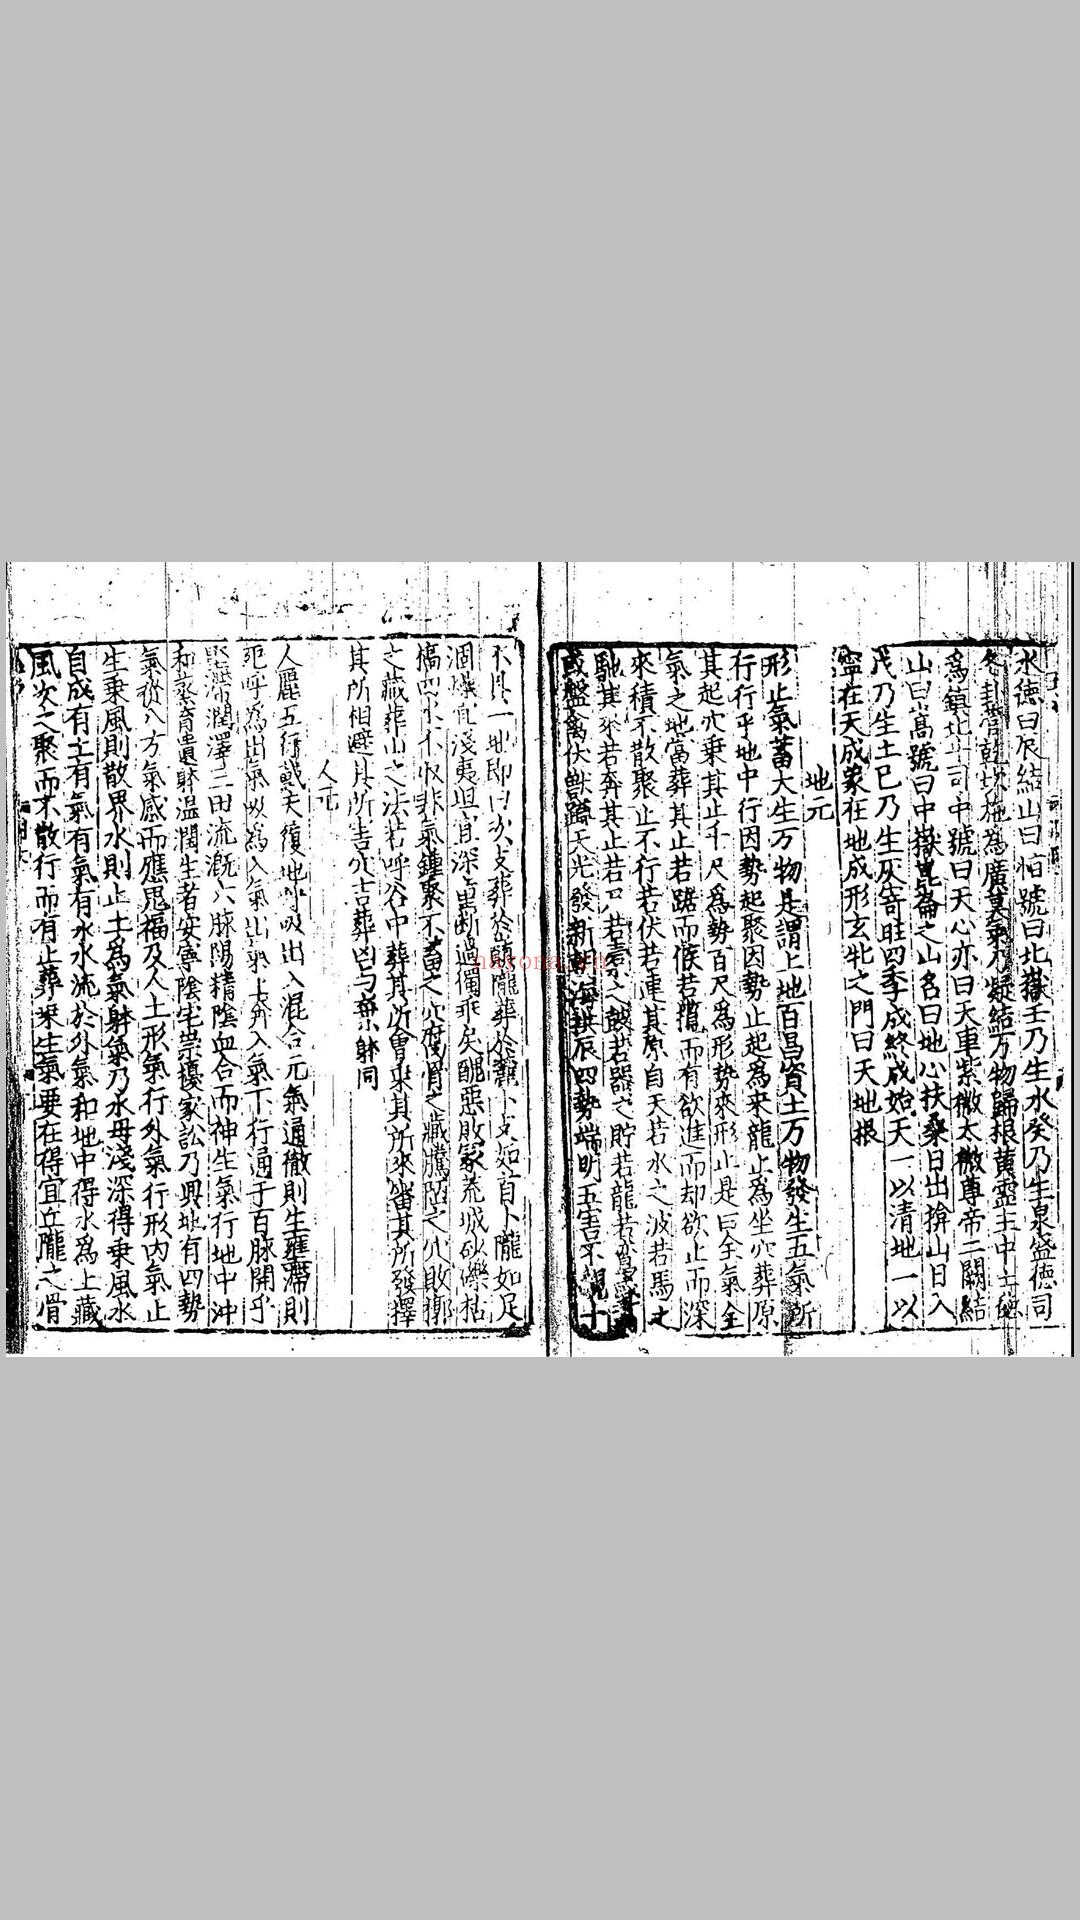 水德曰辰結山曰恒號曰北嶽壬乃生水癸乃生泉盛德司
冬卦管乾坎施為廣莫氣乃凝結万物歸根黃靈主中
為鎮北斗司中號曰天心亦曰天車紫微太微尊帝二闕結
山曰嵩號曰中嶽崑崙之山名曰地心扶桑日出揜山日入
戊乃生土巳乃生灰寄旺四季成終成始天一以清地一以
寧在天成象在地成形玄牝之門曰天地根
地元
形止氣蓄大生万物是謂上地百昌資土万物發生五氣所
行行乎地中行因勢起聚因勢止起為来龍止為坐穴葬原
其起穴乗其止千尺為勢百尺為形勢來形止是曰全氣全
氣之地當葬其止若踞而候若攬而有欲進而却欲止而深
來積不散聚止不行若伏若連其原自天若水之波若馬之
馳其來若奔其止若尸若橐之鼓若器之貯若龍若鸞
或盤禽伏獸蹲天光發新朝海拱辰四勢端明五害不親十
不具一地即曰次支葬於巔隴葬於麓卜支如首卜隴如足
涸燥宜淺夷坦宜深童斷過獨乖戾醜惡敗冢荒城砂礫枯
槁四水不收非氣鍾聚不蓄之穴腐骨之藏騰陋之穴敗槨
之藏葬山之法若呼谷中葬其所會乗其所來審其所發擇
其所相避其所害穴吉葬凶与棄躰同
人元
人麗五行戴天覆地呼吸出入混合元氣通徹則生壅滯則
死呼為出氣吸為入氣出氣上奔入氣下行通于百脉開乎
滯潤澤二田流溉六脉陽精陰血合而神生氣行地中沖
和蒸育遺躰温潤生者安寧陰宅崇擾家訟乃興地有四勢
氣從八方氣感而應鬼福及人土形氣行外氣行形内氣止
生乗風則散界水則止土為氣躰氣乃水母淺深得乗風水
自成有土有氣有氣有水水流於外氣和地中得水為上藏
風次之聚而不散行而有止葬乗生氣要在得宜丘隴之骨
nayona.cn